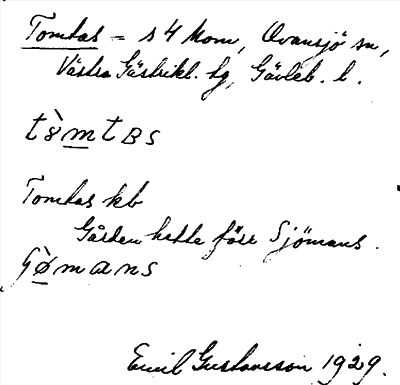 Tomtas = s 4 Kom, Ovansjö sn,
Västra Gästrikl. hg, Gävleb. l.
tò̀mtʙs
Tomtas kb
Gården hette förr Sjömans.
ø̀mans
Emil Gustavsson 1929.